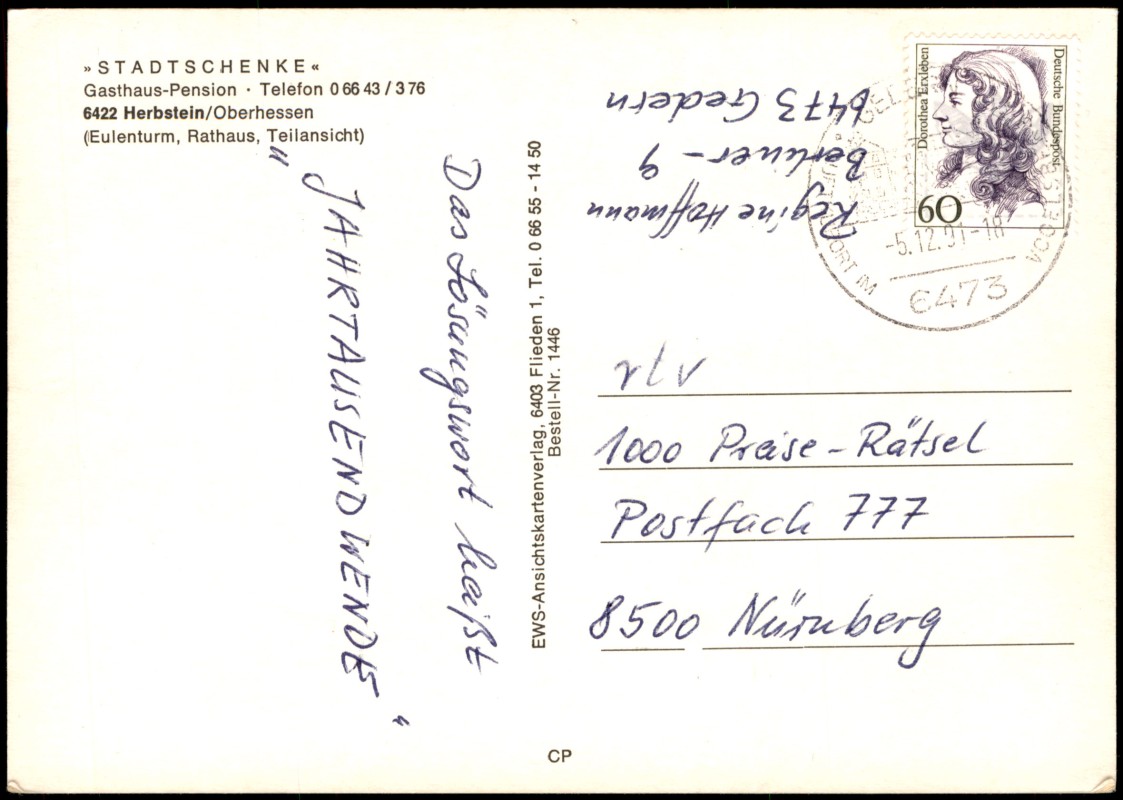 »STADTSCHENKE«
Gasthaus-Pension · Telefon 0 66 43 / 3 76
6422 Herbstein/Oberhessen
(Eulenturm, Rathaus, Teilansicht)
Das Lösungswort heißt
"JAHRTAUSENDWENDE"
EWS-Ansichtskartenverlag, 6403 Flieden 1, Tel. 0 66 55 - 14 50
Bestell-Nr. 1446
Regine Hoffmann
Berliner - 9
6473 Gedern
Dorothea Erxleben
Deutsche Bundespost
60
LUFTKURORT IM VOGELSBERG
-5.12.91-18
6473
rtv
1000 Preise-Rätsel
Postfach 777
8500 Nürnberg
CP